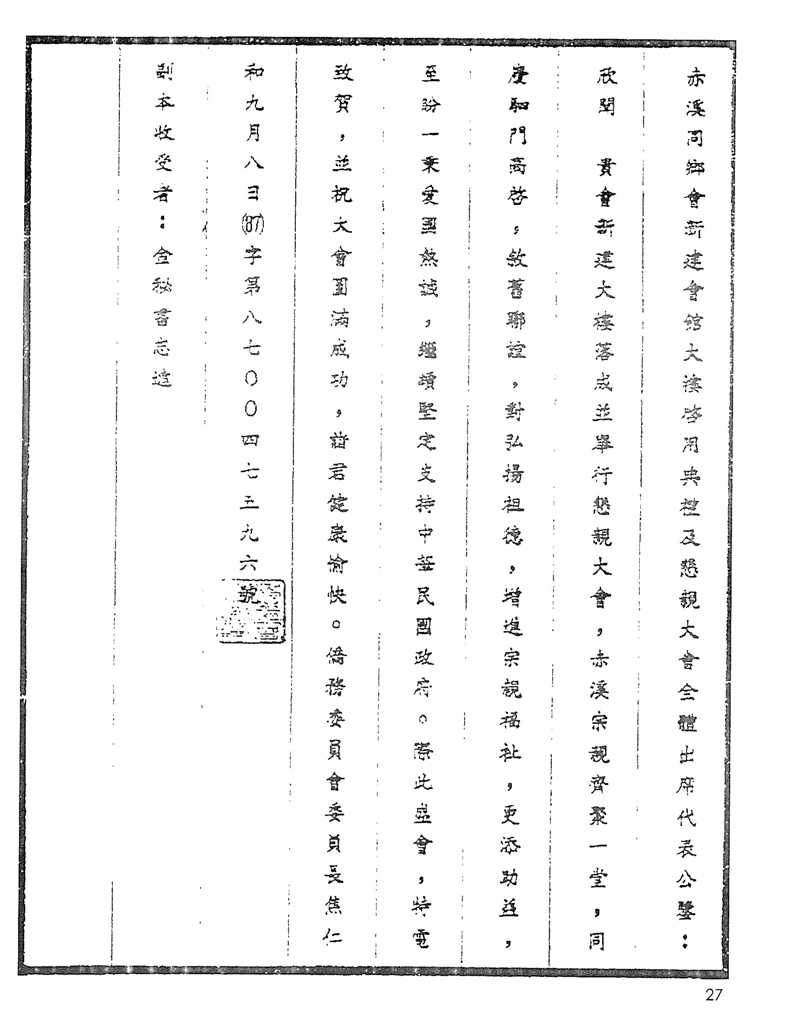 赤溪同鄉會新建會館大樓啓用典禮及懇親大會全體出席代表公鑒：
欣聞　貴會新建大樓落成並舉行懇親大會，赤溪宗親齊聚一堂，同
慶駟門高啓，敘舊聯誼，對弘揚祖德，增進宗親福祉，更添助益，
至盼一秉愛國熱誠，繼續堅定支持中華民國政府。際此盛會，特電
致賀，並祝大會圓滿成功，諸君健康愉快。僑務委員會委員長焦仁
和九月八日(87)字第八七〇〇四七五九六號
副本收受者：金秘書志遠
27